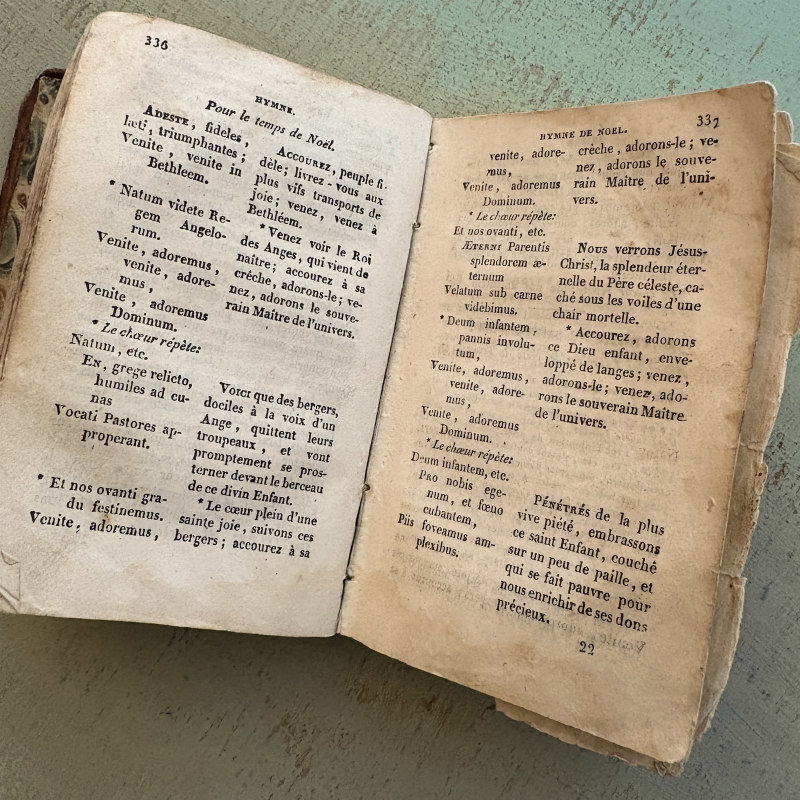 336
HYMNE.
Pour le temps de Noël.
ADESTE, fideles,
læti, triumphantes;
Venite, venite in
Bethleem.
* Natum videte Re-
gem Angelo-
rum.
Venite, adoremus,
venite, adore-
mus,
Venite, adoremus
Dominum.
* Le chœur répète:
Natum, etc.
EN, grege relicto,
humiles ad cu-
nas
Vocati Pastores ap-
properant.
* Et nos ovanti gra-
du festinemus.
Venite, adoremus,
ACCOUREZ, peuple fi-
dèle; livrez-vous aux
plus vifs transports de
joie; venez, venez à
Bethléem.
* Venez voir le Roi
des Anges, qui vient de
naître; accourez à sa
crèche, adorons-le; ve-
nez, adorons le souve-
rain Maître de l'univers.
VOICI que des bergers,
dociles à la voix d'un
Ange, quittent leurs
troupeaux, et vont
promptement se pros-
terner devant le berceau
de ce divin Enfant.
* Le cœur plein d'une
sainte joie, suivons ces
bergers; accourez à sa
HYMNE DE NOEL.
337
venite, adore-
mus,
Venite, adoremus
Dominum.
* Le chœur répète:
Et nos ovanti, etc.
ÆTERNI Parentis
splendorem æ-
ternum
Velatum sub carne
videbimus.
* Deum infantem,
pannis involu-
tum,
Venite, adoremus,
venite, adore-
mus,
Venite, adoremus
Dominum.
* Le chœur répète:
Deum infantem, etc.
PRO nobis ege-
num, et fœno
cubantem,
Piis foveamus am-
plexibus.
crèche, adorons-le; ve-
nez, adorons le souve-
rain Maître de l'uni-
vers.
NOUS verrons Jésus-
Christ, la splendeur éter-
nelle du Père céleste, ca-
ché sous les voiles d'une
chair mortelle.
* Accourez, adorons
ce Dieu enfant, enve-
loppé de langes; venez,
adorons-le; venez, ado-
rons le souverain Maître
de l'univers.
PÉNÉTRÉS de la plus
vive piété, embrassons
ce saint Enfant, couché
sur un peu de paille, et
qui se fait pauvre pour
nous enrichir de ses dons
précieux.
22